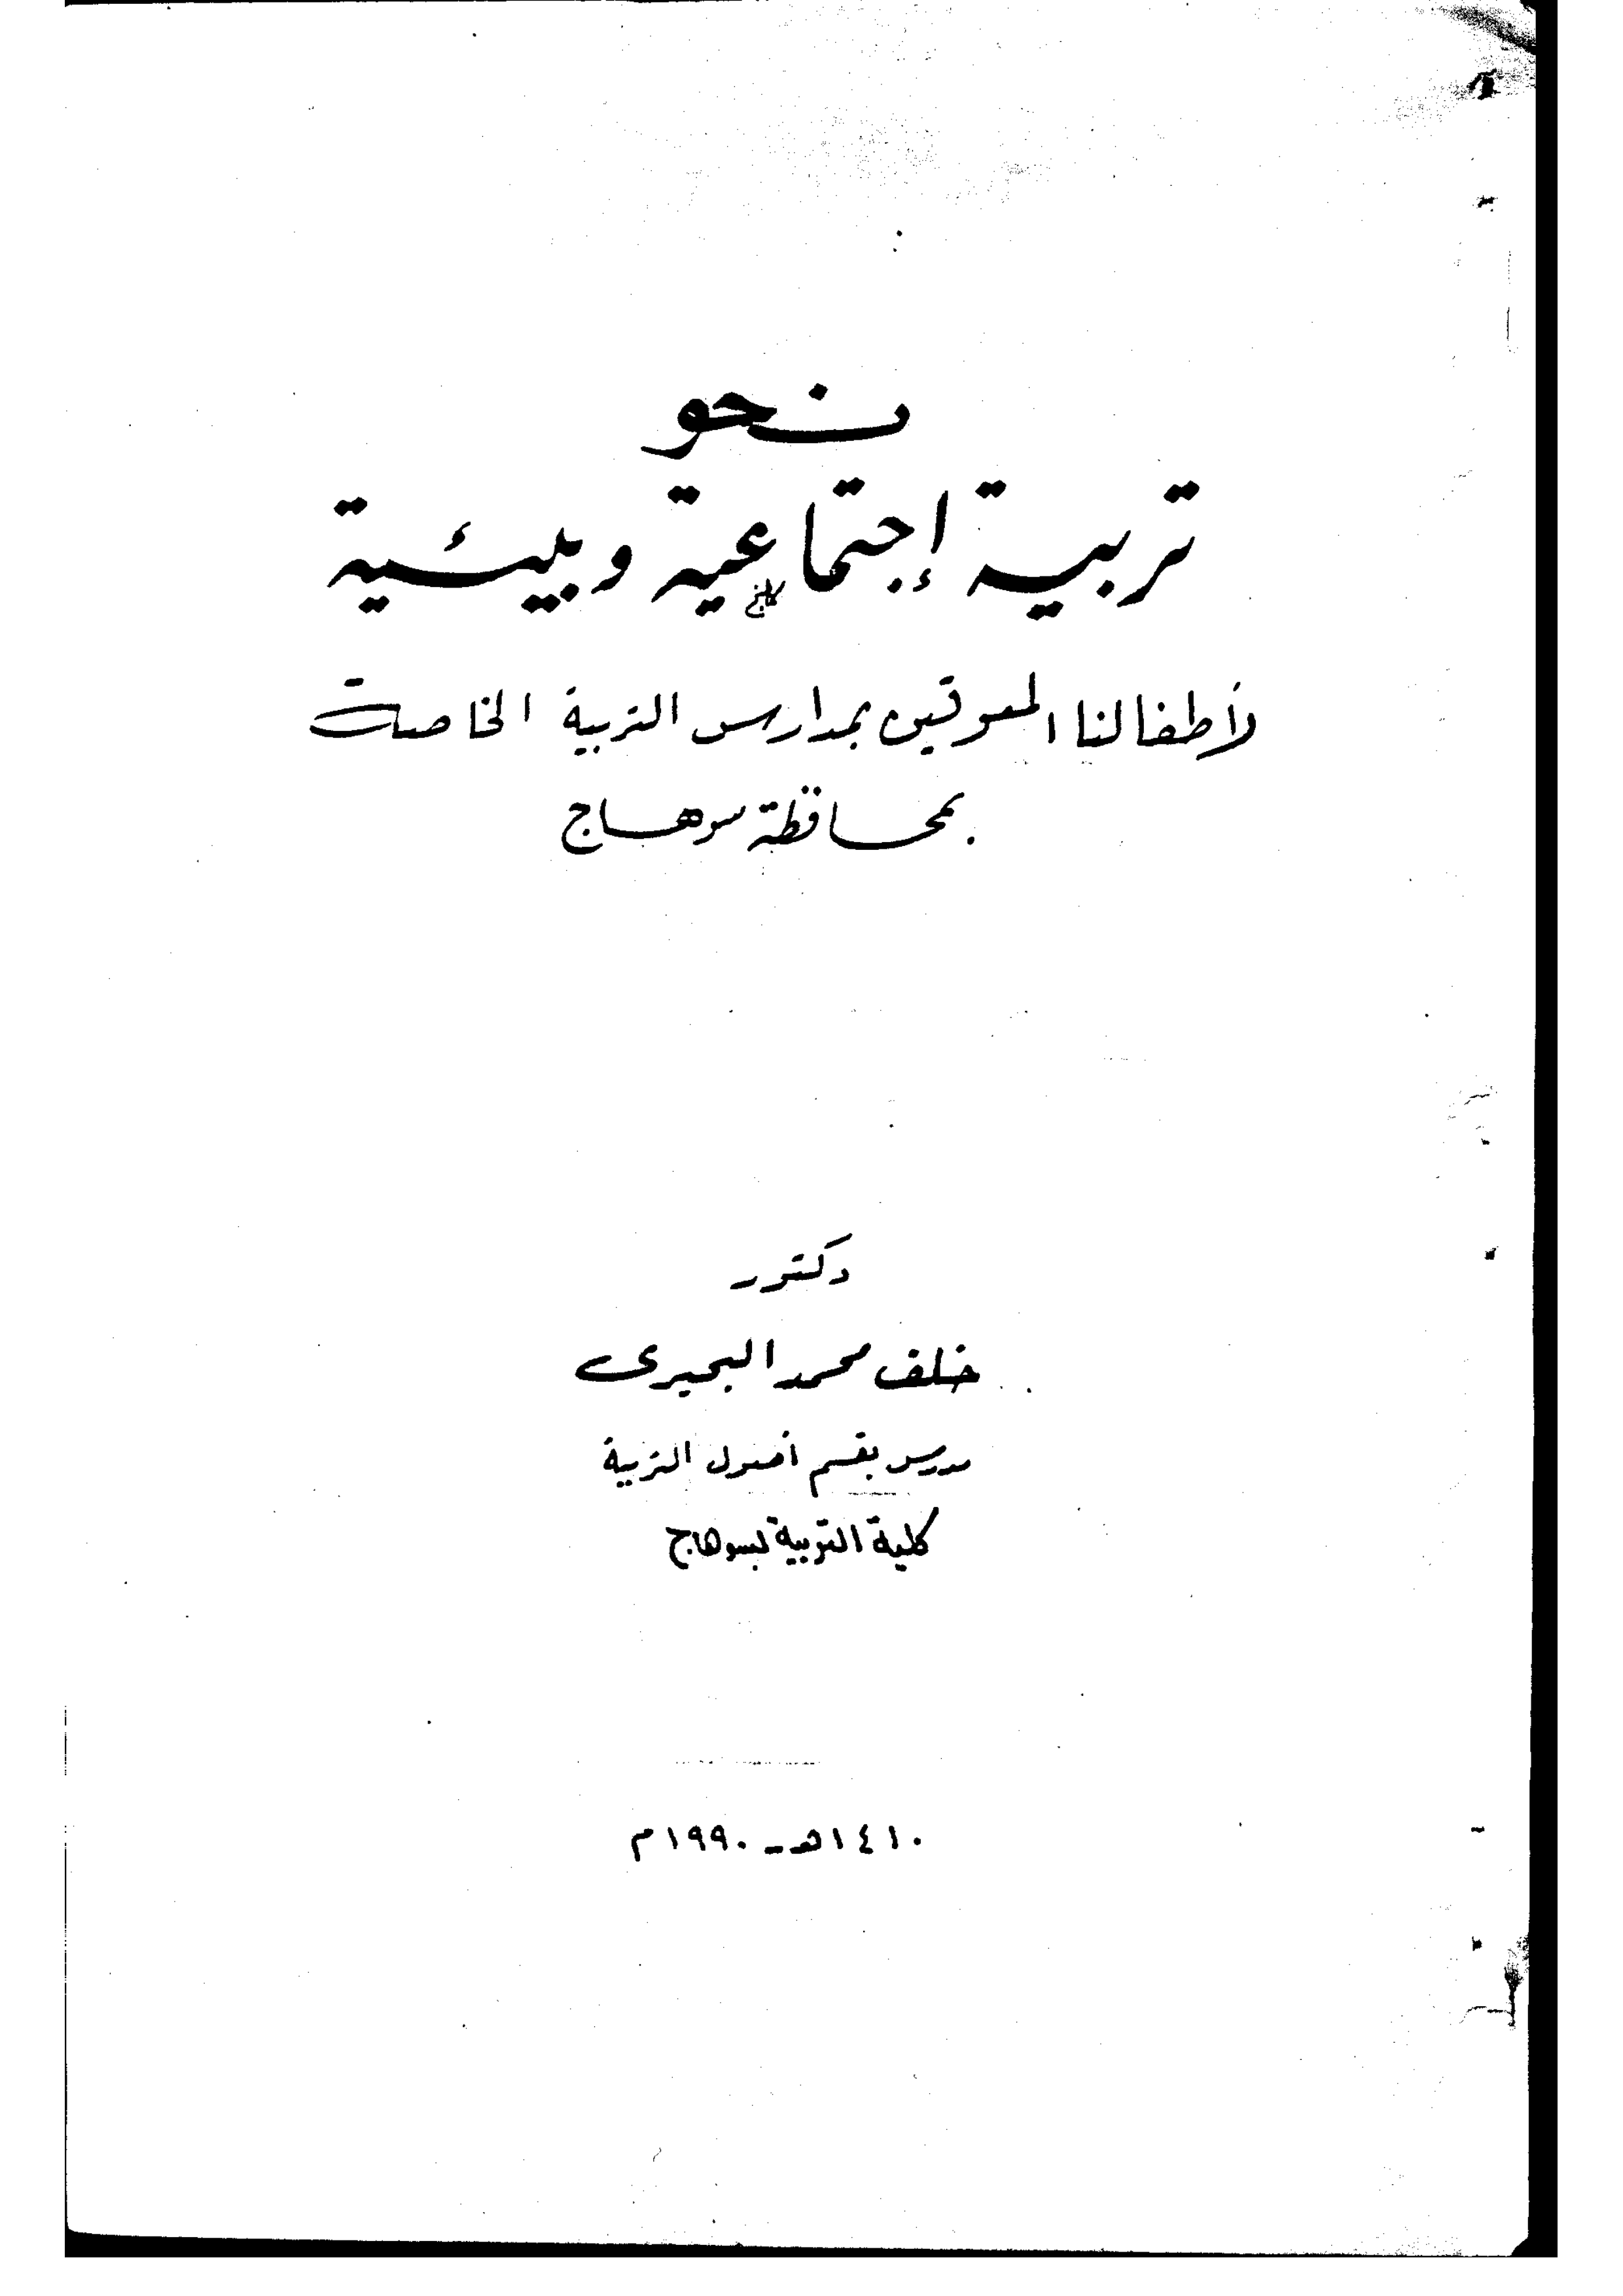 نحو
تربية إجتماعية وبيئية
لأطفالنا المعوقين بمدارس التربية الخاصة
بمحافظة سوهاج
دكتور
خلف محمد البحيرى
مدرس بقسم أصول التربية
كلية التربية بسوهاج
١٤١٠هـ - ١٩٩٠م